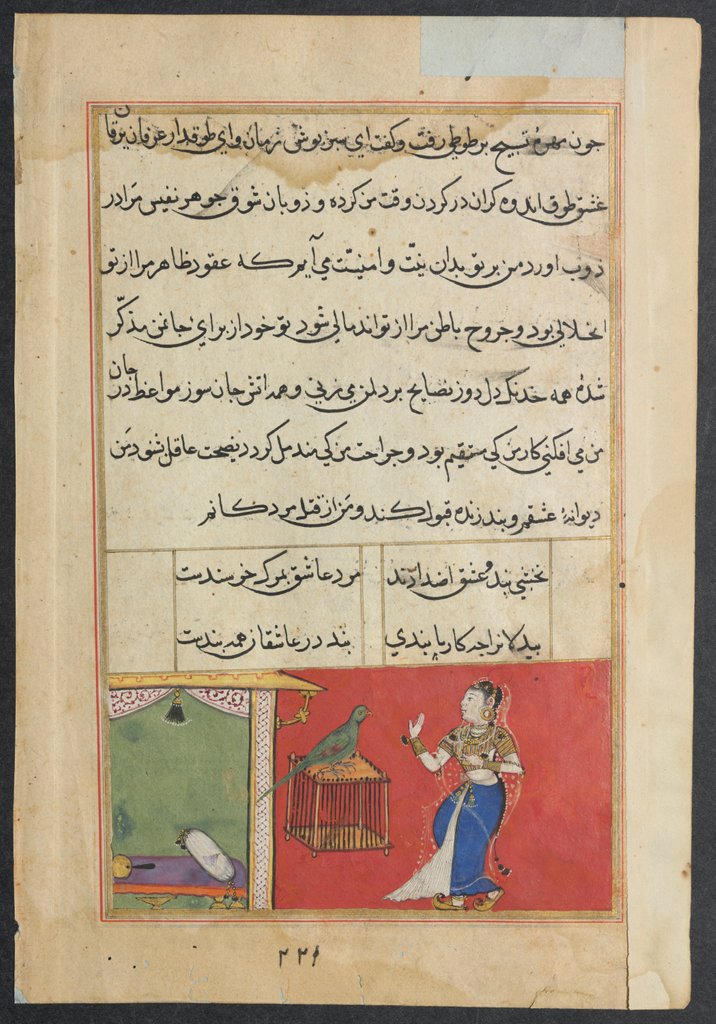 چون مهره تسبیح بر طوطی رفت و کفت ای سبز پوش زمان و ای طوقدار عرفان یرقان
عشق طوق اندوه کران در کردن وقت من کرده و ذوبان شوق جوهر نفیس مرا در
ذوب اورد من بر تو بدان نیت و امنیت می آیم که عقود ظاهر مرا از تو
انحلالی بود و جروح باطن مرا از تو اندمالی شود تو خود از برای جان من مذکر
شدهٔ همه خدنک دل دوز نصایح بر دل من می زنی و همه اتش جان سوز مواعظ در جان
من می افکنی کار من کی مستقیم بود و جراحت من کی مندمل کردد نصیحت عاقل شنود من
دیوانهٔ عشقم و پند زنده قبول کند و من از قبل مردکانم
نخشبی پند و عشق اضدادند
مرد عاشق بمرک خرسندست
بیدلانرا چه کار با پندی
پند در عاشقان همه بندست
۲۲۹